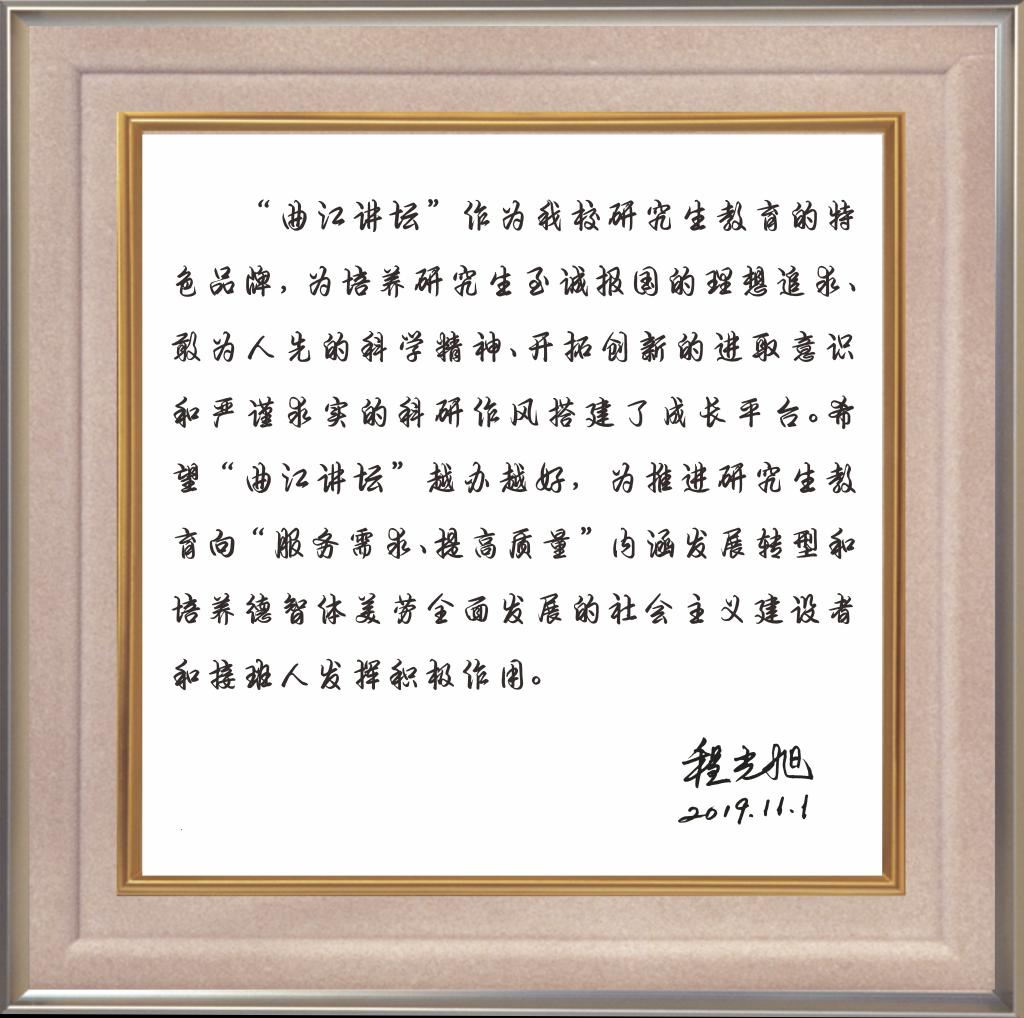 “曲江讲坛”作为我校研究生教育的特
色品牌，为培养研究生至诚报国的理想追求、
敢为人先的科学精神、开拓创新的进取意识
和严谨求实的科研作风搭建了成长平台。希
望“曲江讲坛”越办越好，为推进研究生教
育向“服务需求、提高质量”内涵发展转型和
培养德智体美劳全面发展的社会主义建设者
和接班人发挥积极作用。
程光旭
2019.11.1